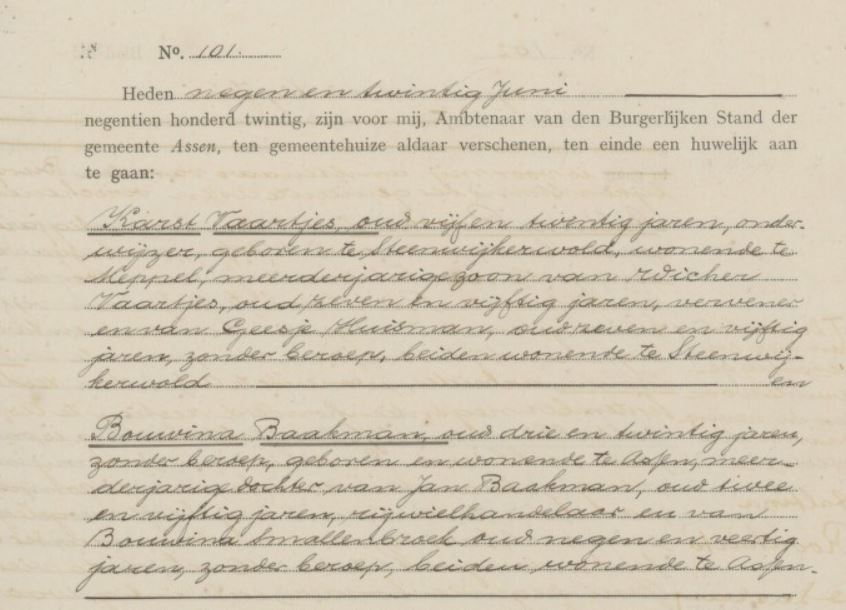 Nº. 101.
Heden negen en twintig Juni
negentien honderd twintig, zijn voor mij, Ambtenaar van den Burgerlijken Stand der
gemeente Assen, ten gemeentehuize aldaar verschenen, ten einde een huwelijk aan
te gaan:
Karst Vaartjes, oud vijf en twintig jaren, onder-
wijzer, geboren te Steenwijkerwold, wonende te
Meppel, meerderjarige zoon van Wicher
Vaartjes, oud zeven en vijftig jaren, vervener
en van Geesje Huisman, oud zeven en vijftig
jaren, zonder beroep, beiden wonende te Steenwij-
kerwold en
Bouwina Baakman, oud drie en twintig jaren,
zonder beroep, geboren en wonende te Assen, meer-
derjarige dochter van Jan Baakman, oud twee
en vijftig jaren, rijwielhandelaar en van
Bouwina Smallenbroek oud negen en veertig
jaren, zonder beroep, beiden wonende te Assen.